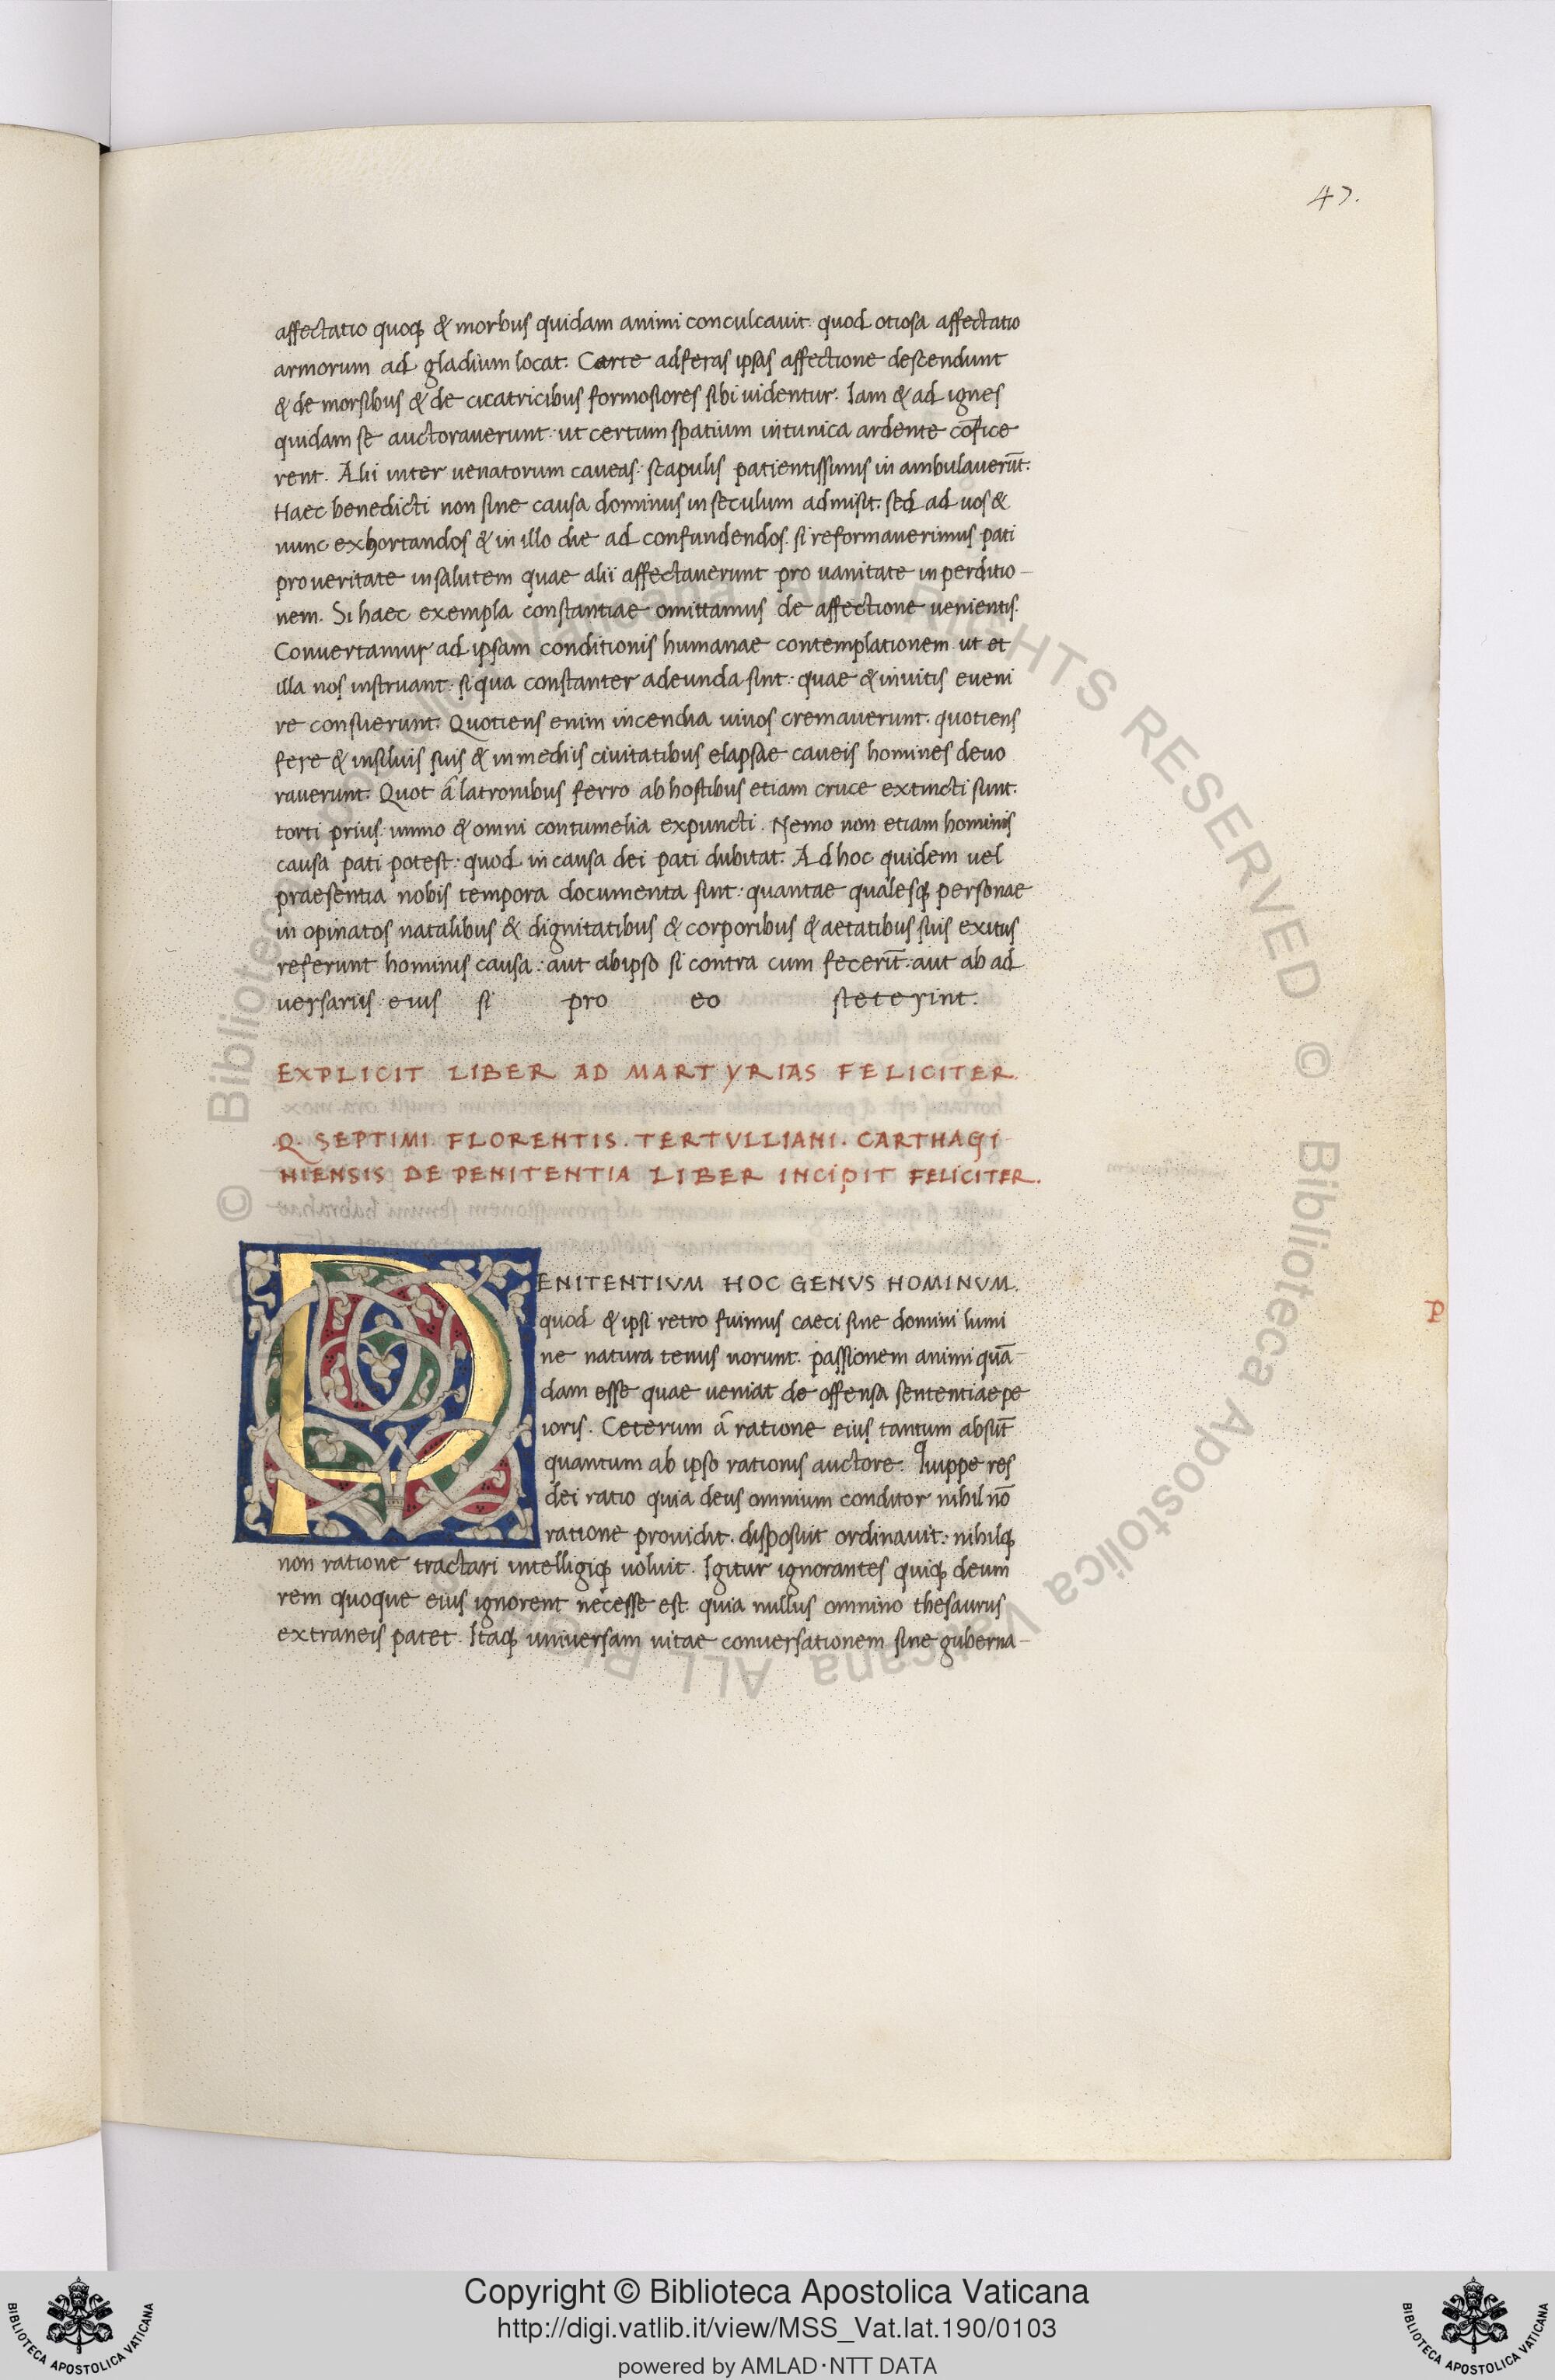 47.
affectatio quoq; & morbus quidam animi conculcavit. quod otiosa affectatio
armorum ad gladium locat. Carte adferas ipsas affectione descendunt
& de morsibus & de cicatricibus formosiores sibi uidentur. Iam & ad ignes
quidam se auctoraverunt. ut certum spatium in tunica ardente cōfice
rent. Alii inter uenatorum caveas: scapulis patientissimis in ambulaverūt.
Haec benedicti non sine causa dominus in seculum admisit. sed ad uos &
nunc exhortandos & in illo die ad confundendos. si reformaverimus pati
pro veritate in salutem quae alii affectaverunt pro vanitate in perditio-
nem. Si haec exempla constantiae omittamus de affectione venientis.
Convertamur ad ipsam conditionis humanae contemplationem. ut et
illa nos instruant: si qua constanter adeunda sint: quae & invitis eveni
re consuerunt. Quotiens enim incendia uiuos cremaverunt. quotiens
fere & in siluis suis & in mediis civitatibus elapsae caveis homines devo
raverunt. Quot á latronibus ferro ab hostibus etiam cruce extincti sunt.
torti prius. immo & omni contumelia expuncti. Nemo non etiam hominis
causa pati potest: quod in causa dei pati dubitat. Ad hoc quidem uel
praesentia nobis tempora documenta sint: quantae qualesq; personae
in opinatos natalibus & dignitatibus & corporibus & aetatibus suis exitus
referunt hominis causa: aut ab ipso si contra cum fecerīt: aut ab ad
versariis eius si pro eo steterint.
EXPLICIT LIBER AD MARTYRIAS FELICITER.
Q. SEPTIMI. FLORENTIS. TERTVLLIANI. CARTHAGI-
NIENSIS DE PENITENTIA LIBER INCIPIT FELICITER.
PENITENTIVM HOC GENVS HOMINVM.
quod & ipsi retro fuimus caeci sine domini lumi
ne natura tenus norunt. passionem animi quā-
dam esse quae veniat de offensa sententiae pe
ioris. Ceterum á ratione eius tantum absūt
quantum ab ipso rationis auctore. Quippe res
dei ratio quia deus omnium conditor nihil nō
ratione providit. disposuit ordinavit: nihilq;
non ratione tractari intelligiq; voluit. Igitur ignorantes quiq; deum
rem quoque eius ignorent necesse est. quia nullus omnino thesaurus
extraneis patet. Itaq; universam vitae conversationem sine guberna-
P
Copyright © Biblioteca Apostolica Vaticana
http://digi.vatlib.it/view/MSS_Vat.lat.190/0103
powered by AMLAD·NTT DATA
BIBLIOTECA APOSTOLICA VATICANA
BIBLIOTECA APOSTOLICA VATICANA
© Biblioteca Apostolica Vaticana ALL RIGHTS RESERVED
© Biblioteca Apostolica Vaticana ALL RIGHTS RESERVED